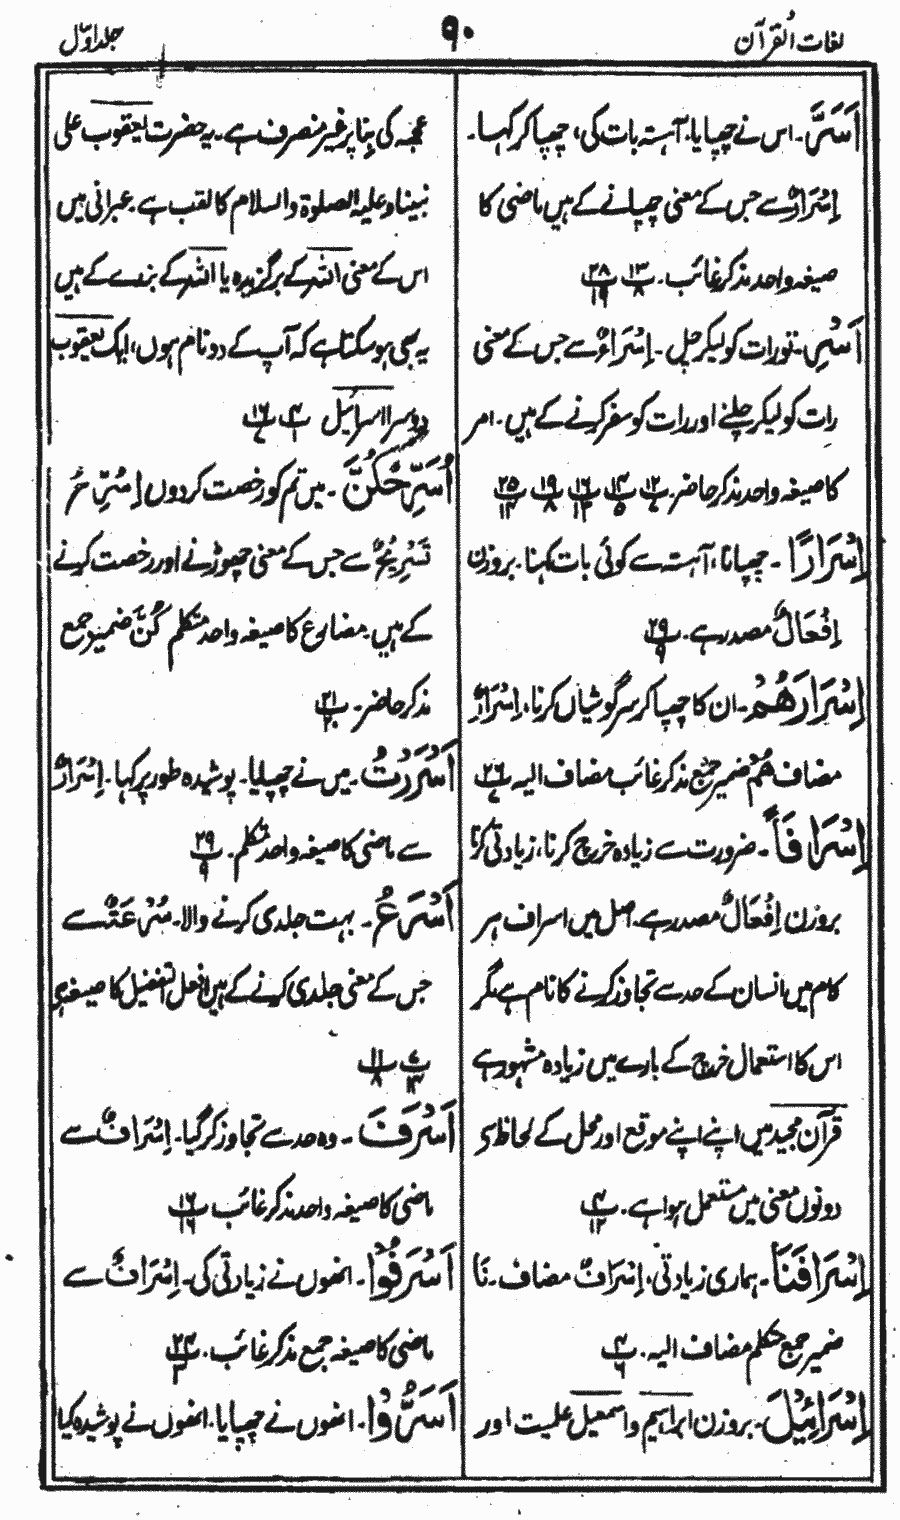 لغات القرآن
۹۰
جلد اوّل
اَسَرَّ۔ اس نے چھپایا۔ آہستہ بات کی، چھپا کر کہا۔
اِسْرَارٌ سے جس کے معنی چھپانے کے ہیں ماضی کا
صیغہ واحد مذکر غائب۔ پ۱۳/۸ پ۲۸/۱۹
اَسْرِ۔ تو رات کو لیکر چل۔ اِسْرَاءٌ سے جس کے معنی
رات کو لیکر چلنے اور رات کو سفر کرنے کے ہیں۔ امر
کا صیغہ واحد مذکر حاضر۔ پ۱۲/۷ پ۱۴/۵ پ۱۶/۱۳ پ۱۹/۸ پ۲۵/۱۴
اِسْرَارًا۔ چھپانا، آہستہ سے کوئی بات کہنا۔ بروزن
اِفْعَالٌ مصدر ہے۔ پ۲۹/۹
اِسْرَارَهُمْ۔ ان کا چھپا کر سرگوشیاں کرنا، اِسْرَارٌ
مضاف هُمْ ضمیر جمع مذکر غائب مضاف الیہ پ۲۶/۷
اِسْرَافًا۔ ضرورت سے زیادہ خرچ کرنا، زیادتی کرنا
بروزن اِفْعَالٌ مصدر ہے۔ اصل میں اسراف ہر
کام میں انسان کے حد سے تجاوز کرنے کا نام ہے مگر
اس کا استعمال خرچ کے بارے میں زیادہ مشہور ہے
قرآن مجید میں اپنے اپنے موقع اور محل کے لحاظ سے
دونوں معنی میں مستعمل ہوا ہے۔ پ۴/۱۲
اِسْرَافَنَا۔ ہماری زیادتی، اِسْرَافٌ مضاف۔ نَا
ضمیر جمع متکلم مضاف الیہ۔ پ۴/۶
اِسْرَائِیْلَ۔ بروزن ابراہیم واسمعیل علمیت اور
عجمہ کی بنا پر غیر منصرف ہے۔ یہ حضرت یعقوب علی
نبینا وعلیہ الصلوٰۃ والسلام کا لقب ہے۔ عبرانی میں
اس کے معنی اللہ کے برگزیدہ یا اللہ کے بندے کے ہیں
یہ بھی ہو سکتا ہے کہ آپ کے دو نام ہوں، ایک یعقوب
دوسرا اسرائیل پ۴/۱ پ۱۶/۷
اُسَرِّحْكُنَّ۔ میں تم کو رخصت کر دوں اُسَرِّحُ
تَسْرِیْحٌ سے جس کے معنی چھوڑنے اور رخصت کرنے
کے ہیں۔ مضارع کا صیغہ واحد متکلم کُنَّ ضمیر جمع
مذکر حاضر۔ پ۲۱/۲۰
اَسْرَرْتُ۔ میں نے چھپایا۔ پوشیدہ طور پر کہا۔ اِسْرَارٌ
سے ماضی کا صیغہ واحد متکلم۔ پ۲۹/۹
اَسْرَعُ۔ بہت جلدی کرنے والا۔ سُرْعَتٌ سے
جس کے معنی جلدی کرنے کے ہیں افعل التفضیل کا صیغہ ہے
پ۷/۱۴ پ۱۱/۸
اَسْرَفَ۔ وہ حد سے تجاوز کر گیا۔ اِسْرَافٌ سے
ماضی کا صیغہ واحد مذکر غائب پ۱۶/۱۶
اَسْرَفُوْا۔ انھوں نے زیادتی کی۔ اِسْرَافٌ سے
ماضی کا صیغہ جمع مذکر غائب۔ پ۲۴/۳
اَسَرُّوا۔ انھوں نے چھپایا۔ انھوں نے پوشیدہ کیا